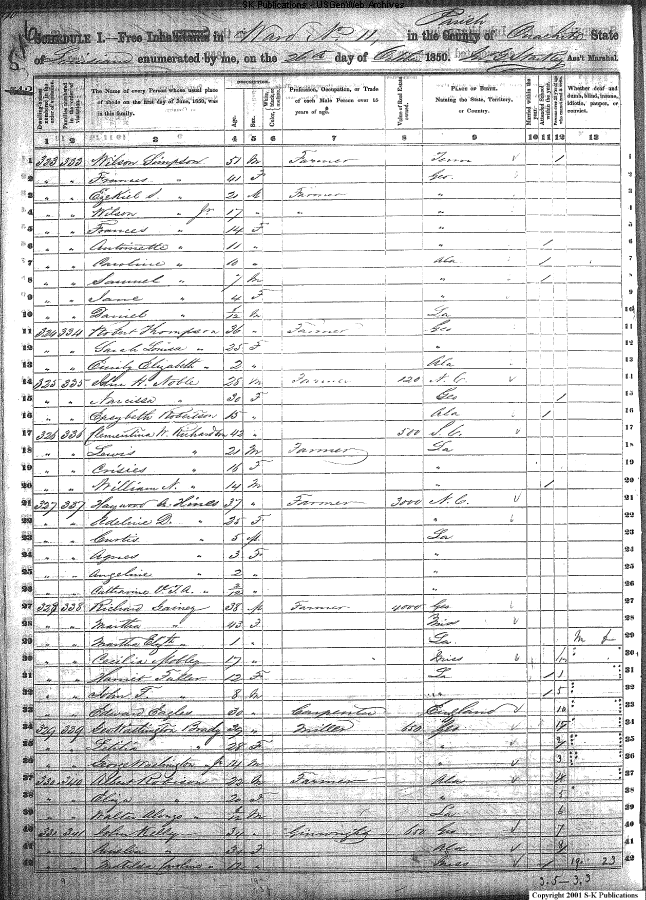 S-K Publications - USGenWeb Archives
Parish
SCHEDULE I.—Free Inhabitants in Ward No 11, in the County of Ouachita State
of Louisiana enumerated by me, on the 26th day of Octbr 1850. Ass't Marshal.
DESCRIPTION.
Dwelling-houses numbered in the order of visitation. Families numbered in the order of visitation. The Name of every Person whose usual place of abode on the first day of June, 1850, was in this family. Age. Sex. Color, White, black, or mulatto. Profession, Occupation, or Trade of each Male Person over 15 years of age. Value of Real Estate owned. PLACE OF BIRTH. Naming the State, Territory, or Country. Married within the year. Attended School within the year. Whether deaf and dumb, blind, insane, idiotic, pauper, or convict.
1 2 3 4 5 6 7 8 9 10 11 12 13
1 323 333 Wilson Simpson 51 M Farmer Tenn 1 1
2 " " Frances " 41 F Geo. 2
3 " " Ezekiel S. " 21 M Farmer " 3
4 " " Wilson " Jr 17 " " " 4
5 " " Frances " 14 F " 5
6 " " Antoinette " 11 " " 1 6
7 " " Caroline " 10 " Ala 1 7
8 " " Samuel " 7 M " 1 8
9 " " Jane " 4 F " 9
10 " " Daniel " /12 M La 10
11 324 334 Robert Thompson 36 " Farmer Geo 11
12 " " Sarah Louisa " 25 F " 12
13 " " Emily Elizabeth " 2 " Ala 13
14 325 335 John N. Noble 25 M Farmer 120 N. C. 14
15 " " Narcissa " 30 F Geo 1 15
16 " " Robertson 15 " Ala 1 16
17 326 336 Clementina W. Richardson 42 " 500 S. C. 17
18 " " Lewis " 21 M Farmer La 18
19 " " " 16 F " 19
20 " " William N. " 14 M " 1 20
21 327 337 Haywood A. Hines 37 " Farmer 3000 N. C. 21
22 " " Adeline D. " 25 F " 22
23 " " Curtis " 5 M La 23
24 " " Agnes " 3 F " 24
25 " " Angeline " 2 " " 25
26 " " Catharine V.T.A. " /12 " " 26
27 328 338 Richard 38 M Farmer 4000 Geo 27
28 " " Martha " 43 F Miss 28
29 " " Martha Elizth " 1 " La. 29
30 " " Cecilia Mobley 17 " Miss 30
31 " " Harriet Fuller 12 F La 1 31
32 " " John T. " 8 M " 1 32
33 " " Edward Eagles 30 " Carpenter England 33
34 329 339 Geo Washington Brady 39 " Miller 650 Geo 34
35 " " Letitia " 28 F " 35
36 " " George Washington " Jr 14 M " 36
37 330 340 Robison 23 M Farmer Ala 37
38 " " Eliza " 20 F " 38
39 " " Walter Alonzo " /12 M La 39
40 331 341 John Kelly 34 " Ginwright 600 Geo 40
41 " " " 30 F Ala 41
42 " " Matilda " 12 " Miss 1 42
3.5—3.3
Copyright 2001 S-K Publications